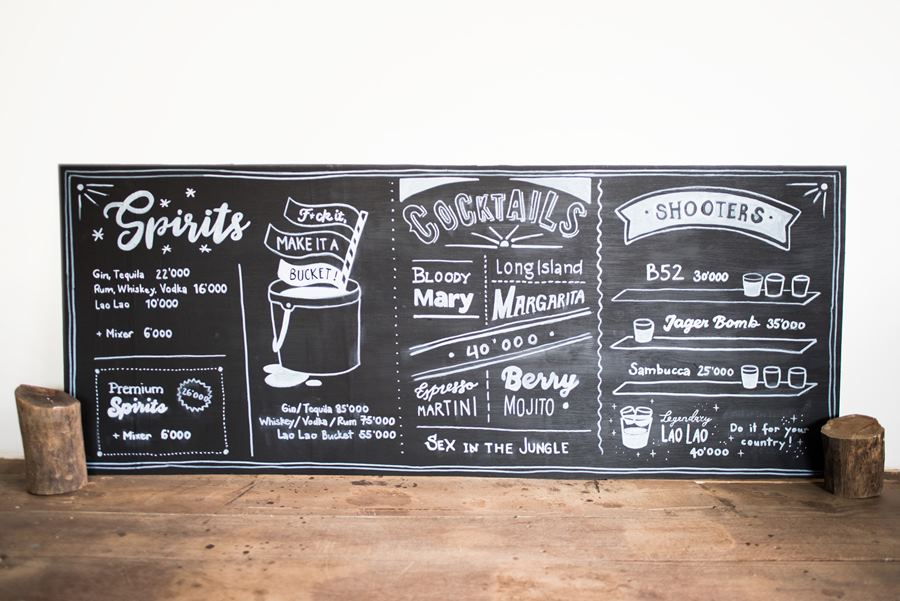 Spirits
Gin, Tequila 22'000
Rum, Whiskey, Vodka 16'000
Lao Lao 10'000
+ Mixer 6'000
Premium
Spirits
26'000
+ Mixer 6'000
F*ck it,
MAKE IT A
BUCKET!
Gin/Tequila 85'000
Whiskey/Vodka/Rum 75'000
Lao Lao Bucket 55'000
COCKTAILS
BLOODY
Mary
Long Island
MARGARITA
40'000
Espresso
MARTINI
Berry
MOJITO
SEX IN THE JUNGLE
SHOOTERS
B52 30'000
Jager Bomb 35'000
Sambucca 25'000
Legendary
LAO LAO
40'000
Do it for your
country!